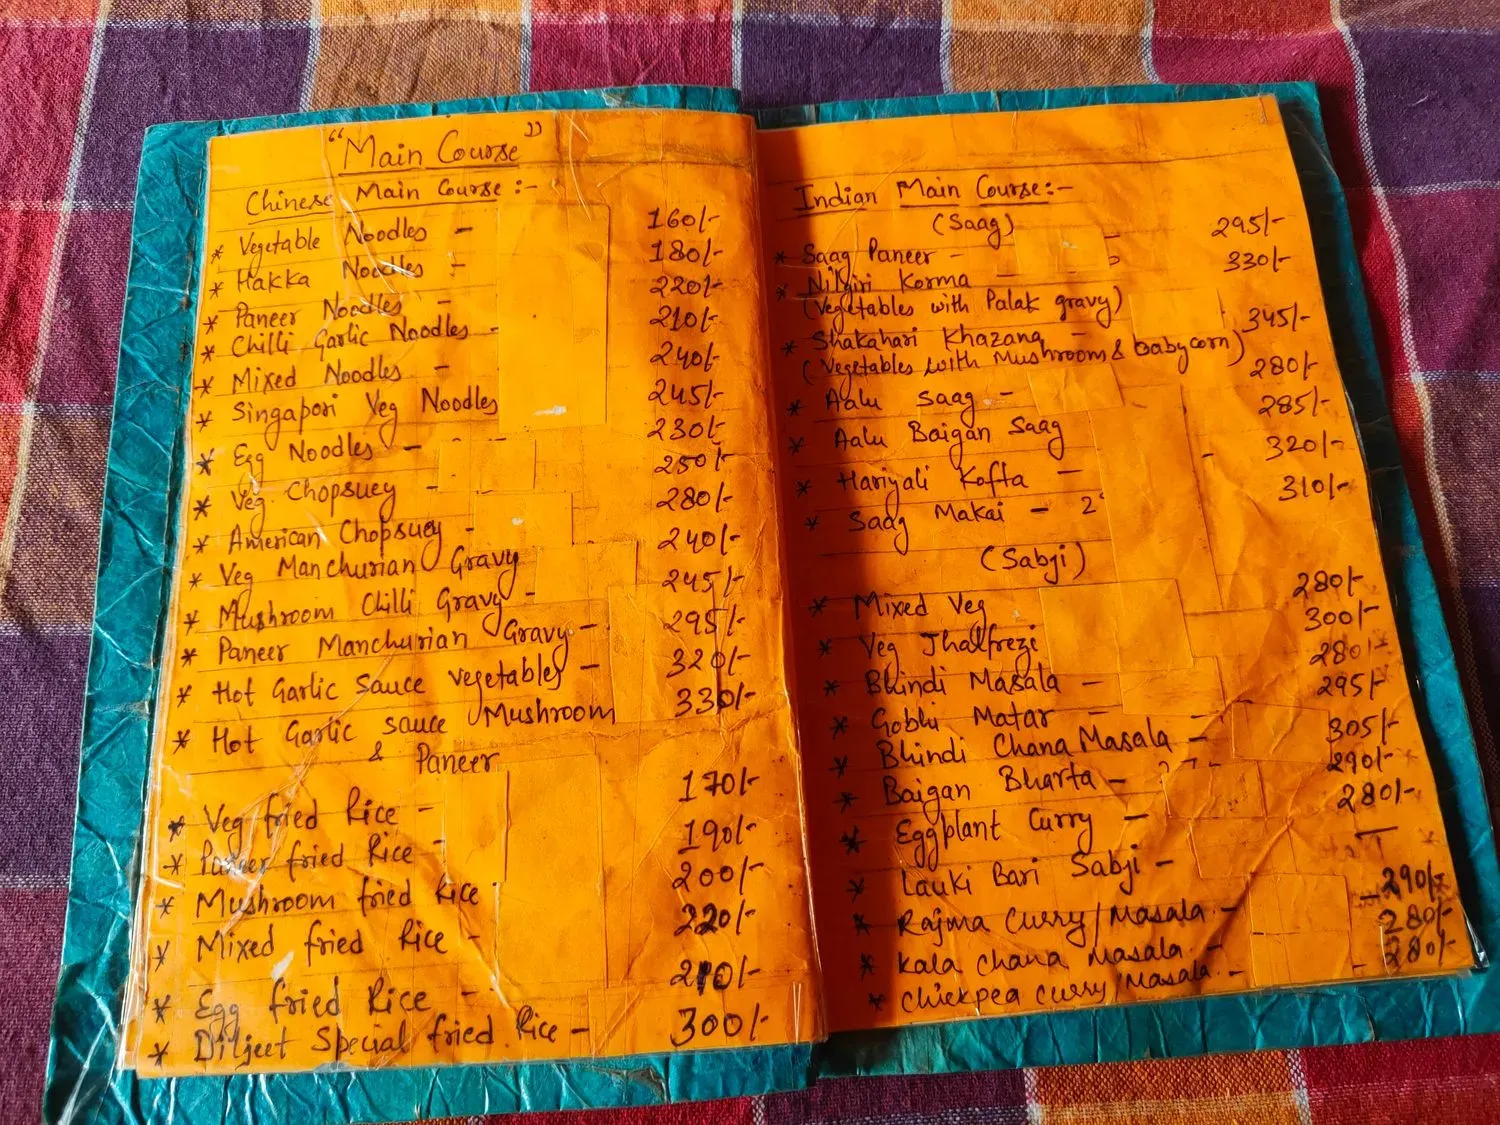 "Main Course"
Chinese Main Course :-
* Vegetable Noodles - 160/-
* Hakka Noodles - 180/-
* Paneer Noodles - 220/-
* Chilli Garlic Noodles - 210/-
* Mixed Noodles - 240/-
* Singapori Veg Noodles 245/-
* Egg Noodles - 230/-
* Veg. Chopsuey - 250/-
* American Chopsuey - 280/-
* Veg Manchurian Gravy 240/-
* Mushroom Chilli Gravy - 245/-
* Paneer Manchurian Gravy - 295/-
* Hot Garlic Sauce vegetables - 320/-
* Hot Garlic sauce Mushroom 330/-
& Paneer
* Veg fried Rice - 170/-
* Paneer fried Rice - 190/-
* Mushroom fried Rice 200/-
* Mixed fried Rice - 220/-
* Egg fried Rice - 210/-
* Diljeet Special fried Rice - 300/-
Indian Main Course:-
(Saag)
* Saag Paneer - 295/-
* Nilgiri Korma 330/-
(Vegetables with Palak gravy)
* Shakahari Khazana - 345/-
(Vegetables with Mushroom & babycorn)
* Aalu Saag - 280/-
* Aalu Baigan Saag 285/-
* Hariyali Kofta - 320/-
* Saag Makai - 2 310/-
(Sabji)
* Mixed Veg 280/-
* Veg Jhalfrezi 300/-
* Bhindi Masala - 280/-
* Gobhi Matar - 295/-
* Bhindi Chana Masala - 305/-
* Baigan Bharta - 290/-
* Eggplant Curry - 280/-
* Lauki Bari Sabji -
* Rajma Curry/Masala - 290/-
* Kala Chana Masala - 280/-
* Chickpea Curry/Masala - 280/-